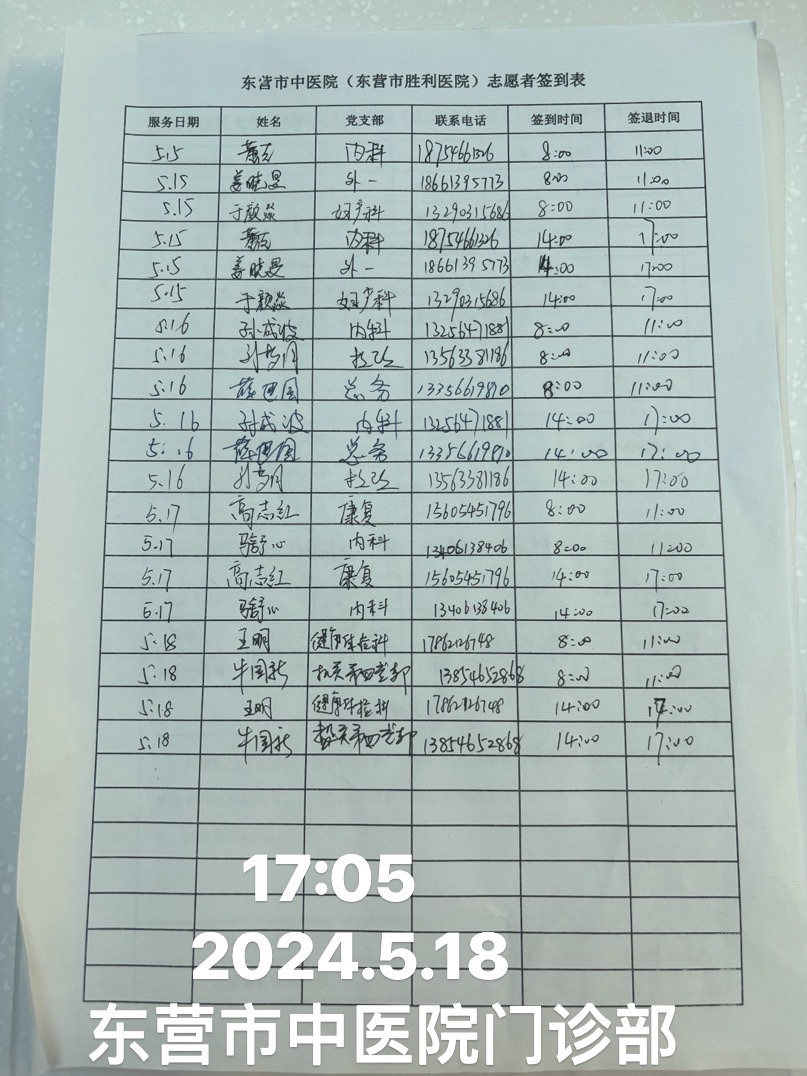 东营市中医院（东营市胜利医院）志愿者签到表
服务日期 姓名 党支部 联系电话 签到时间 签退时间
5.15 内科 18754661326 8:00 11:00
5.15 姜晓昱 外一 18661395773 8:00 11:00
5.15 于毅焱 妇产科 13290315686 8:00 11:00
5.15 内科 18754661326 14:00 17:00
5.15 姜晓昱 外一 18661395773 14:00 17:00
5.15 妇产科 13290315686 14:00 17:00
5.16 孙成波 内科 13256471881 8:00 11:00
5.16 13563381186 8:00 11:00
5.16 总务 13356619810 8:00 11:00
5.16 孙成波 内科 13256471881 14:00 17:00
5.16 总务 13356619810 14:00 17:00
5.16 13563381186 14:00 17:00
5.17 高志红 康复 15605451796 8:00 11:00
5.17 骆舒心 内科 13406138406 8:00 11:00
5.17 高志红 康复 15605451796 14:00 17:00
5.17 骆舒心 内科 13406138406 14:00 17:00
5.18 王明 健康体检科 17862126748 8:00 11:00
5.18 牛国新 机关第四支部 13854652868 8:00 11:00
5.18 王明 健康体检科 17862126748 14:00 17:00
5.18 牛国新 机关第四支部 13854652868 14:00 17:00
17:05
2024.5.18
东营市中医院门诊部